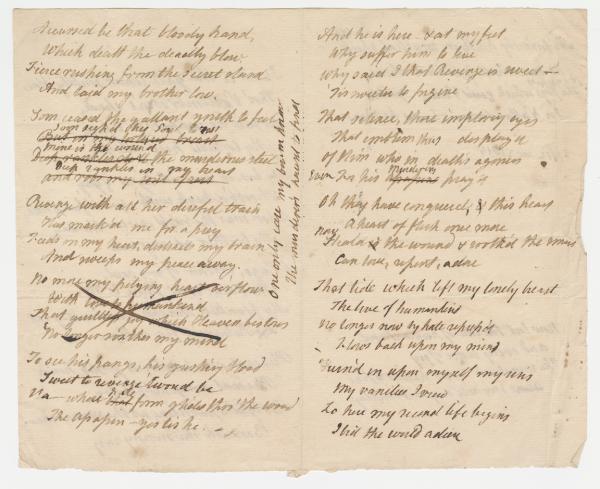 Accursed be that bloody hand,
Which dealt the deadly blow.
Fierce rushing from the secret stand
And laid my brother low.
Soon ceased the gallant youth to feel
Soon sighed his soul to rest
But in my tortured breast
mine is the wound
Deep rankles the murderous steel
Deep rankles in my heart
and robs my soul of rest
Revenge with all her direful train
Has mark'd me for a prey
Feeds on my heart, distracts my brain
And sweeps my peace away.
No more my pitying heart overflows
With love to humankind
That guiltless joy which Heaven bestows
No longer soothes my mind
To see his pangs, his gushing blood
Sweet to revenge would be
Ha – what form glides thro' the wood
The assassin – yes tis he. –
One only care my bosom knows
The murderer's haunt to find
And he is here – & at my feet
Why suffer him to live
Why said I that Revenge is sweet –
Tis sweeter to forgive
That silence, those imploring eyes
That emblem thus displayed
Of Him who in death's agonies
Even for his murderers pray'd
Oh they have conquered, & this heart
A heart of flesh once more
now
Should the wound & sooth'd the smart
Can love, repent, adore
That tide which left my lonely breast
The love of humankind
No longer now by hate represt
Flows back upon my mind
Turn'd in upon myself my sins
My vanities I view
Lo here my second life begins
I bid the world adieu